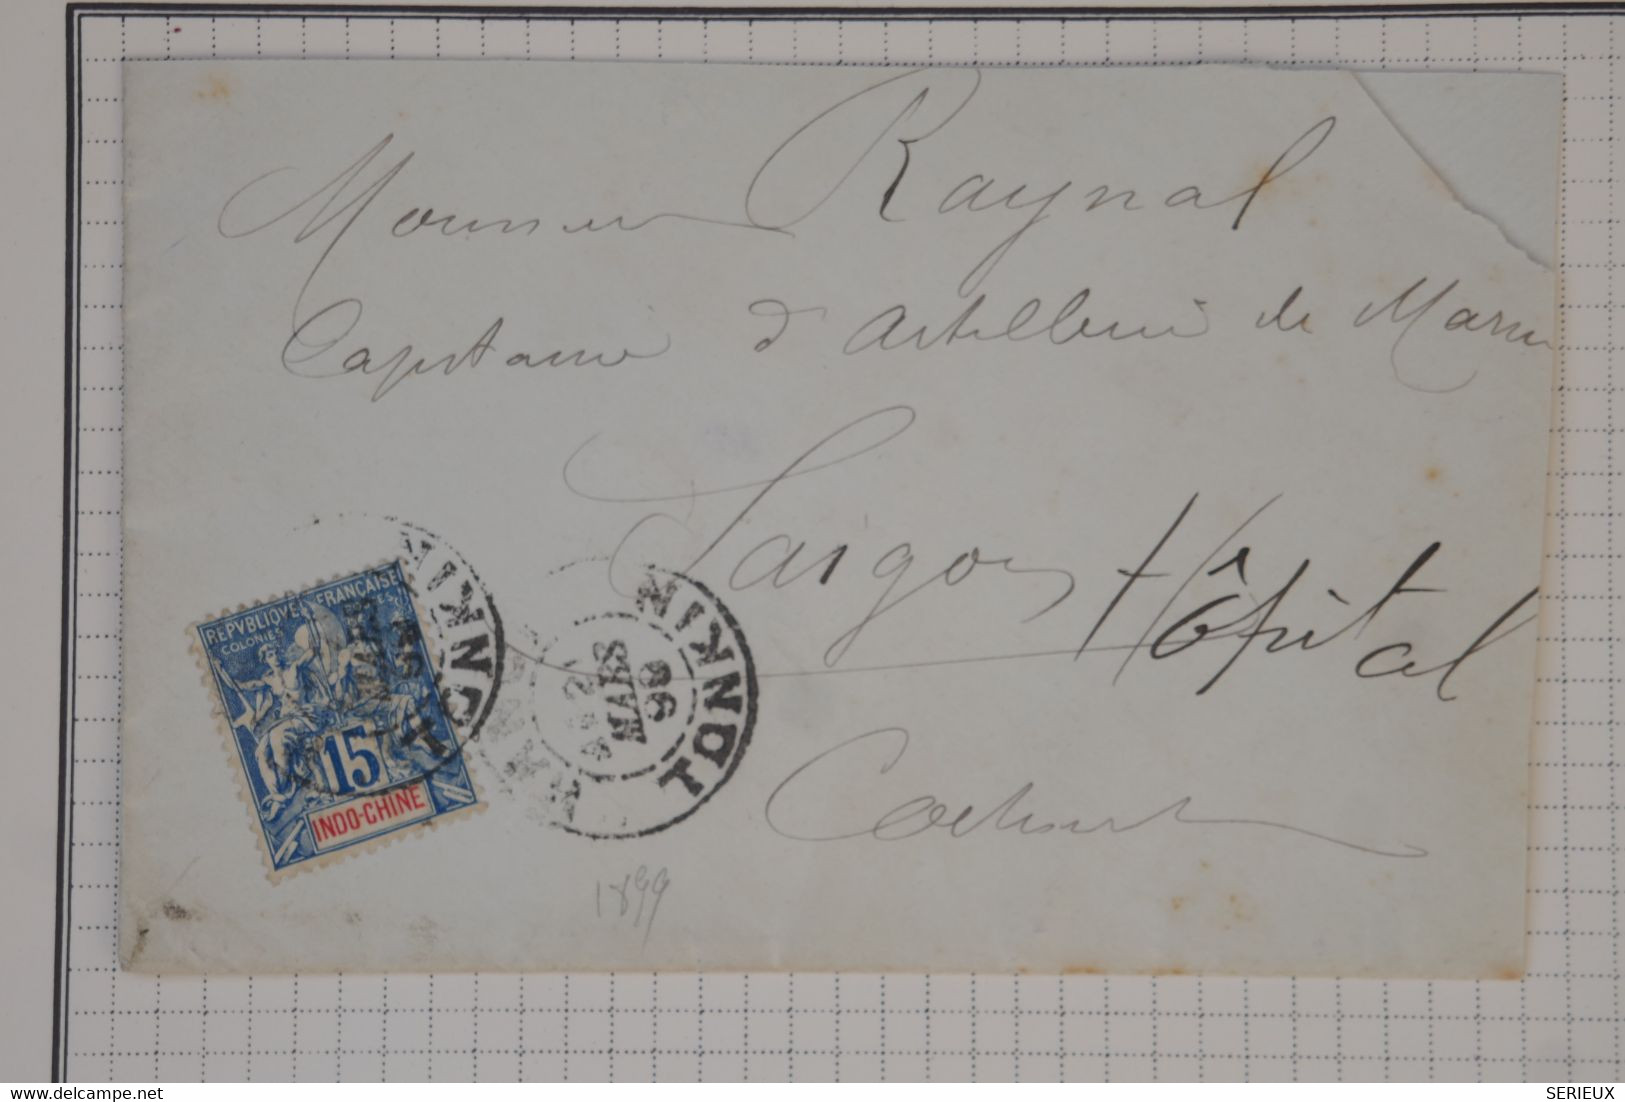 Monsieur Raynal
Capitaine d'Artillerie de Marine
Saigon Hôpital
Cochinch
REPVBLIQVE FRANÇAISE
COLONIES
15
INDO-CHINE
MARS
TONKIN
MARS
99
TONKIN
1899
www.delcampe.net
SERIEUX